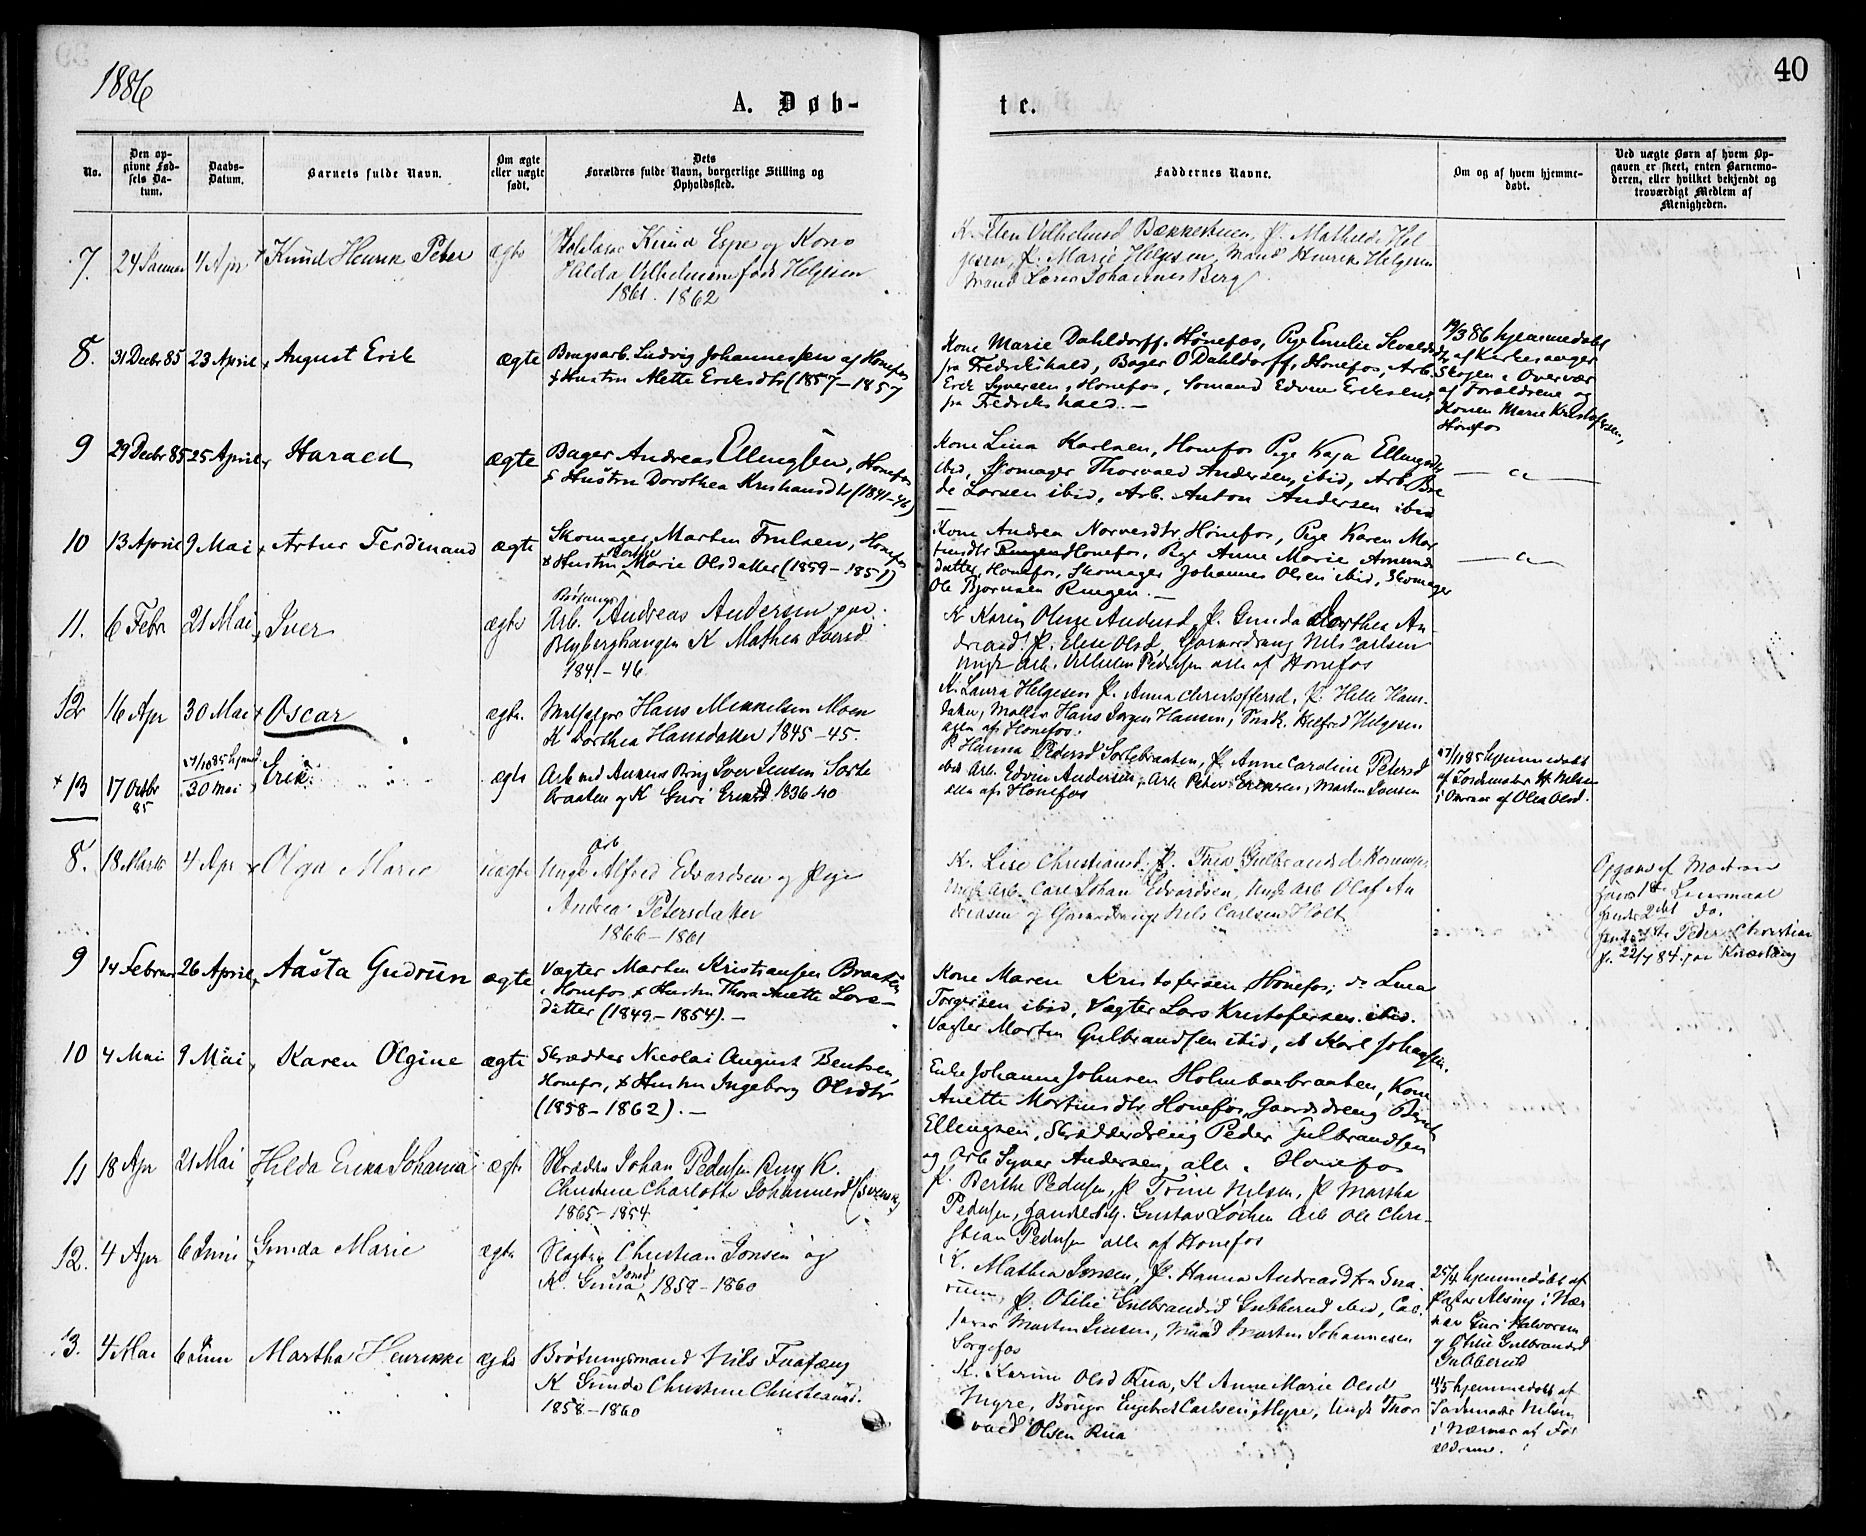 1886
40
A. Døb-
te.
No.
Den op-
givne Fød-
sels Da-
tum.
Daabs-
Datum.
Barnets fulde Navn.
Om ægte
eller uægte
født.
Dets
Forældres fulde Navn, borgerlige Stilling og
Opholdssted.
Faddernes Navne.
Om og af hvem hjemme-
døbt.
Ved uægte Børn af hvem Op-
gaven er skeet, enten Barnemo-
deren, eller hvilket bekjendt og
troværdigt Medlem af
Menigheden.
7. 24 Januar 4 Apr Knud Henrik Peter ægte Knud Espe og Kone
Hilda Vilhelmine født Helgesen
1861. 1862
K. Elen Vilhelmsd Bækkehuen, P. Mathilde Hel
gesen, P. Marie Helgesen, Mand Henrik Helgesen
Mand Lærer Johannes Berg
8. 31 Decbr 85 23 April August Erik ægte Brugsarb. Ludvig Johannessen af Hønefos
& Hustru Mette Eriksdtr (1857-1857
Kone Marie Dahldorff, Hønefos, Pige Emilie
fra Fredrikshald, Bager O Dahldorff, Hønefos, Arb.
Erik Syversen, Hønefos, Sømand Edvin Eriksen
fra Fredrikshald.-
19/3 86 hjemmedøbt
af Kirkesanger
Skogen i Overvær
af Forældrene og
Konen Marie Kristofersen,
Hønefos
9 29 Decbr 85 25 April Harald ægte Bager Andreas Ellingsen, Hønefos
& Hustru Dorothea Kristiansdtr (1841-46)
Kone Lina Karlsen, Hønefos Pige Kaja Ellingsdtr
ibid, Skomager Thorvald Andersen, ibid, Arb. Bre
de Larsen ibid, Arb. Anton Andersen ibid
— " —
10 13 April 9 Mai Artur Ferdinand ægte Skomager Martin Trulsen, Hønefos
& Hustru Marie Olsdatter (1859-1851)
Kone Andrea Narvesdtr Hønefos, Pige Karen Mar
tinsdtr Ringen Hønefos, Pige Anne Marie Amund
datter, Hønefos, Skomager Johannes Olsen ibid, Skomager
Ole Bjørnsen Ringen.-
— " —
11. 6 Febr 21 Mai Iver ægte Arb. Andreas Andersen paa
Blyberghaugen K Mathea Iversd
1841-46
K Karen Oline Andersd, P. Gunda Dorthea An
dreasd P. Else Olsd, Gaardsdreng Nils Carlsen
Ungk Arb. Vilhelm Pedersen alle af Hønefos
12 16 Apr 30 Mai Oscar ægte. Hans Mikkelsen Moen
K Dorthea Hansdatter 1845-45.
K. Laura Helgesen P. Anna Christoffersd. P. Helle Hans
datter, Møller Hans Jørgen Hansen, Snedk. Helfred Helgesen
alle af Hønefos.
13 17 Octbr
85
17/10 85 hjemd
30 Mai Erik ægte Arb ved Ankers Brug Iver Jensen Sorte
braaten og K Guri Eriksd. 1836-40
P Hanna Pedersd Sortebraaten, P. Anne Caroline Petersd
ibid Arb. Edvin Andersen, Arb. Peter Eriksen, Martin Larsen
alle af Hønefos
17/10 85 hjemmedøbt
af Jordemoder H. Nilsen
i Nærvær af Olea Olsd.
8. 18 Marts 4 Apr Olga Marie uægte Arb
Ungk Alfred Edvardsen og Pige
Andrea Petersdatter
1866-1861
K. Lise Christiansd. P. Thea Gulbrandsd
Ungk Arb. Carl Johan Edvardsen, Ungk Arb Olaf An
dreasen og Gaardsdreng Nils Carlsen Holt
Opgave af Moderen
hans 1ste Leiermaal
hendes 2det do.
hendes 1ste Peder Christian
f. 22/7 84 paa
9 14 Februar 26 April Aasta Gudrun ægte Vægter Martin Kristiansen Braaten
i Hønefos & Hustru Thora Anette Lars-
datter (1849-1854).-
Kone Maren Kristofersen Hønefos, do Lina
Torgersen ibid, Vægter Lars Kristofersen ibid.
Vægter Martin Gulbrandsen ibid, A Karl Johansen.
10 4 Mai 9 Mai Karen Olgine ægte Skrædder Nicolai August Bentsen,
Hønefos, & Hustru Ingeborg Olsdtr
(1858-1862).-
Enke Johanne Johnsen Holmboebraaten, Kone
Anette Martinsdtr Hønefos, Gaardsdreng Bernt
Ellingsen, Skrædderdreng Peder Gulbrandsen
og Arb Syver Andersen, alle i Hønefos
11 18 Apr 21 Mai Hilda Erika Johanna ægte Skrædder Johan Pedersen Ring K.
Christine Charlotte Johannesd (Svensk)
1865-1854
P. Berthe Pedersen, P Trine Nilsen, P Martha
Pedersen, Gustav Løchen Arb Ole Chri-
stian Pedersen alle af Hønefos
12. 4 Apr 6 Juni Gunda Marie ægte Slagter Christian Jonsen og
K. Gunia Jonsd 1859-1860
K. Mathea Jonsen, P. Hanna Andreasd fra Sna
rum, P. Otilie Gulbrandsd Gubberud ibid,
Martin Jensen, Ungk Martin Johannesen
Sorgefos
25/4 hjemmedøbt af
Pastor Alsing i Nær
vær Guri Halvorsen
og Otilie Gulbrandsd
Gubberud
13. 4 Mai 6 Juni Martha Henrikke ægte Brøtningsmand Nils Tuftøeng
K Gunda Christine Christiansd.
1858-1860
K. Karine Olsd Rua, K Anne Marie Olsd
Myre, Bruger Engebret Carlsen Myre, Ungk Thor
vald Olsen Rua
4/5 hjemmedøbt af
Jordemoder Nilsen
i Nærvær af For
ældrene.